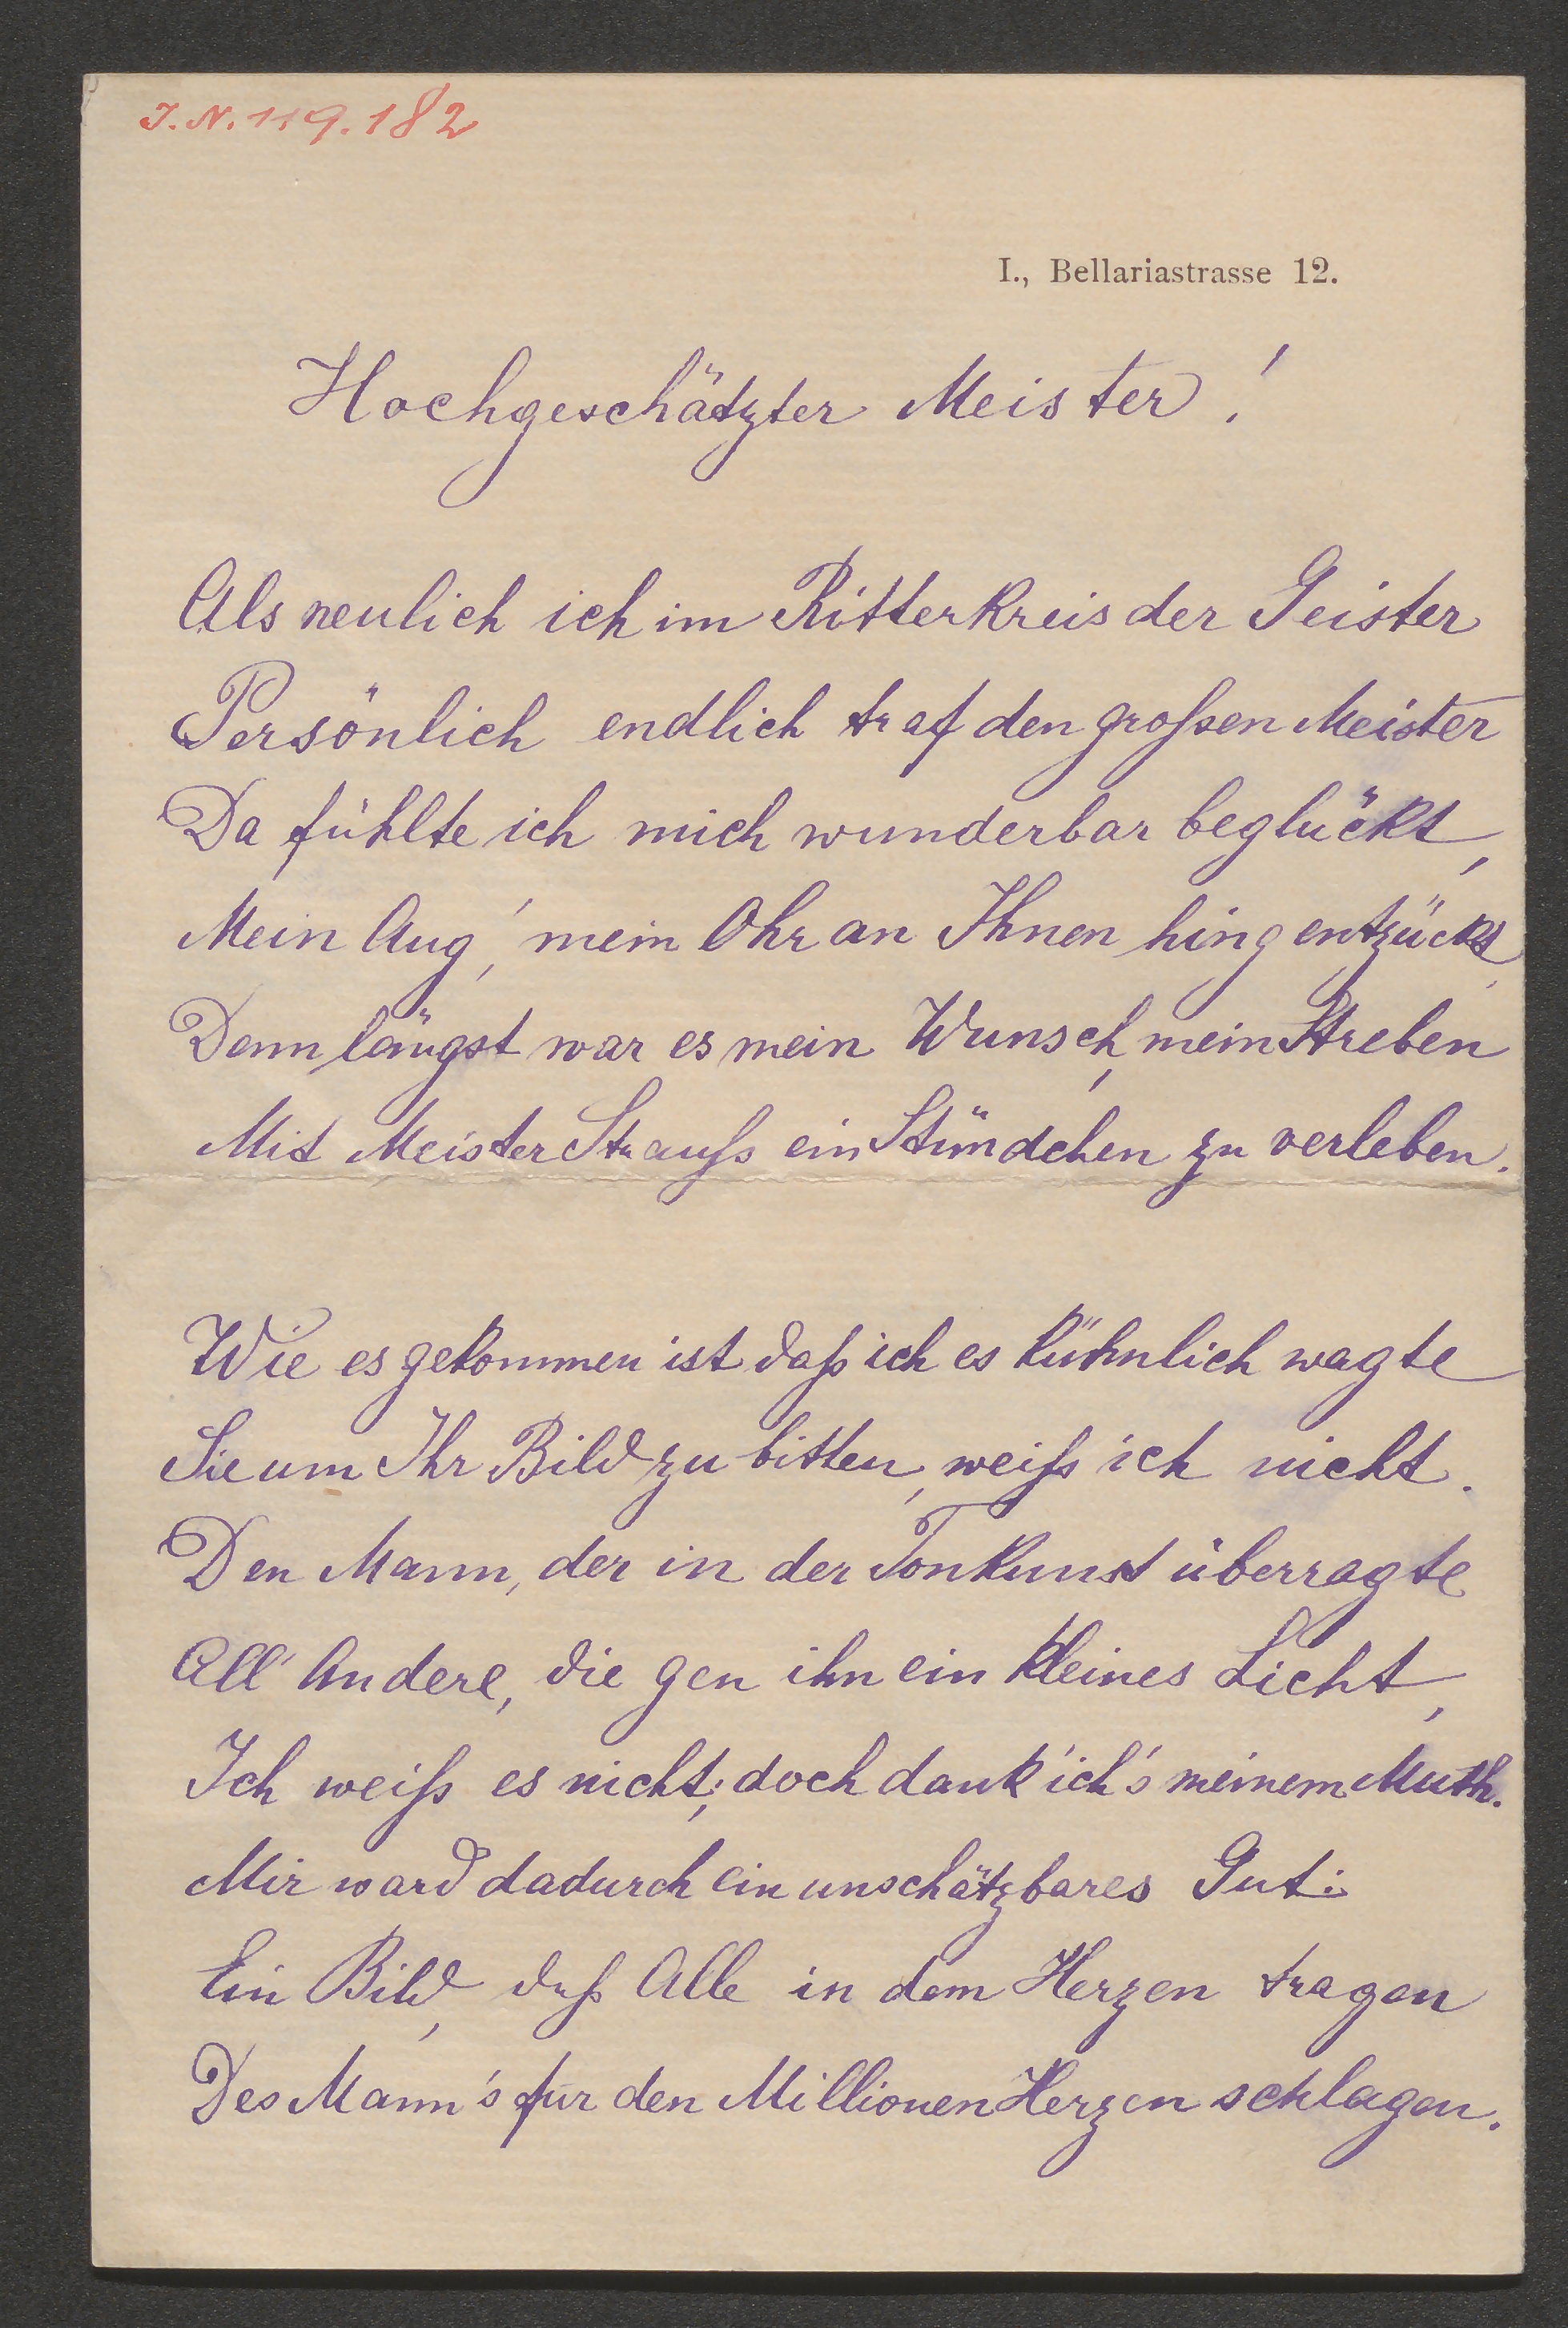 J.N. 119.182
I., Bellariastrasse 12.
Hochgeschätzter Meister!
Als neulich ich im Ritterkreis der Geister
Persönlich endlich traf den großen Meister
Da fühlte ich mich wunderbar beglückt,
Mein Aug', mein Ohr an Ihnen hing entzückt,
Denn längst war es mein Wunsch, mein Streben
Mit Meister Strauß ein Stündchen zu verleben.
Wie es gekommen ist daß ich es kühnlich wagte
Sie um Ihr Bild zu bitten, weiß ich nicht.
Den Mann, der in der Tonkunst überragte
All' Andere, die gen ihn ein kleines Licht,
Ich weiß es nicht; doch dank' ich's meinem Muth.
Mir ward dadurch ein unschätzbares Gut:
Ein Bild, daß Alle in dem Herzen tragen
Des Mann's für den Millionen Herzen schlagen.